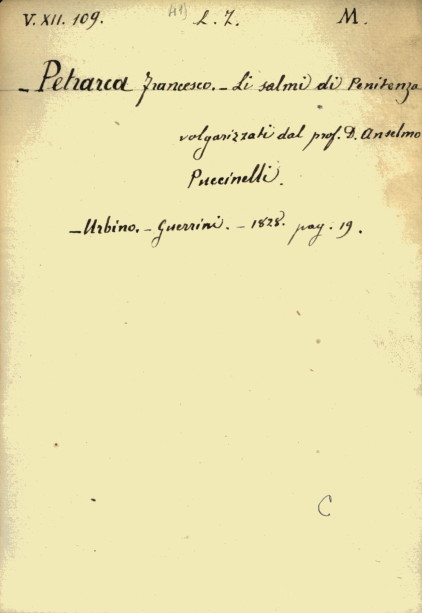 V. XII. 109. 41) L. Z. M.
- Petrarca Francesco. - Li salmi di Penitenza
volgarizzati dal prof. D. Anselmo
Puccinelli.
- Urbino. - Guerrini. - 1828. pag. 19.
C